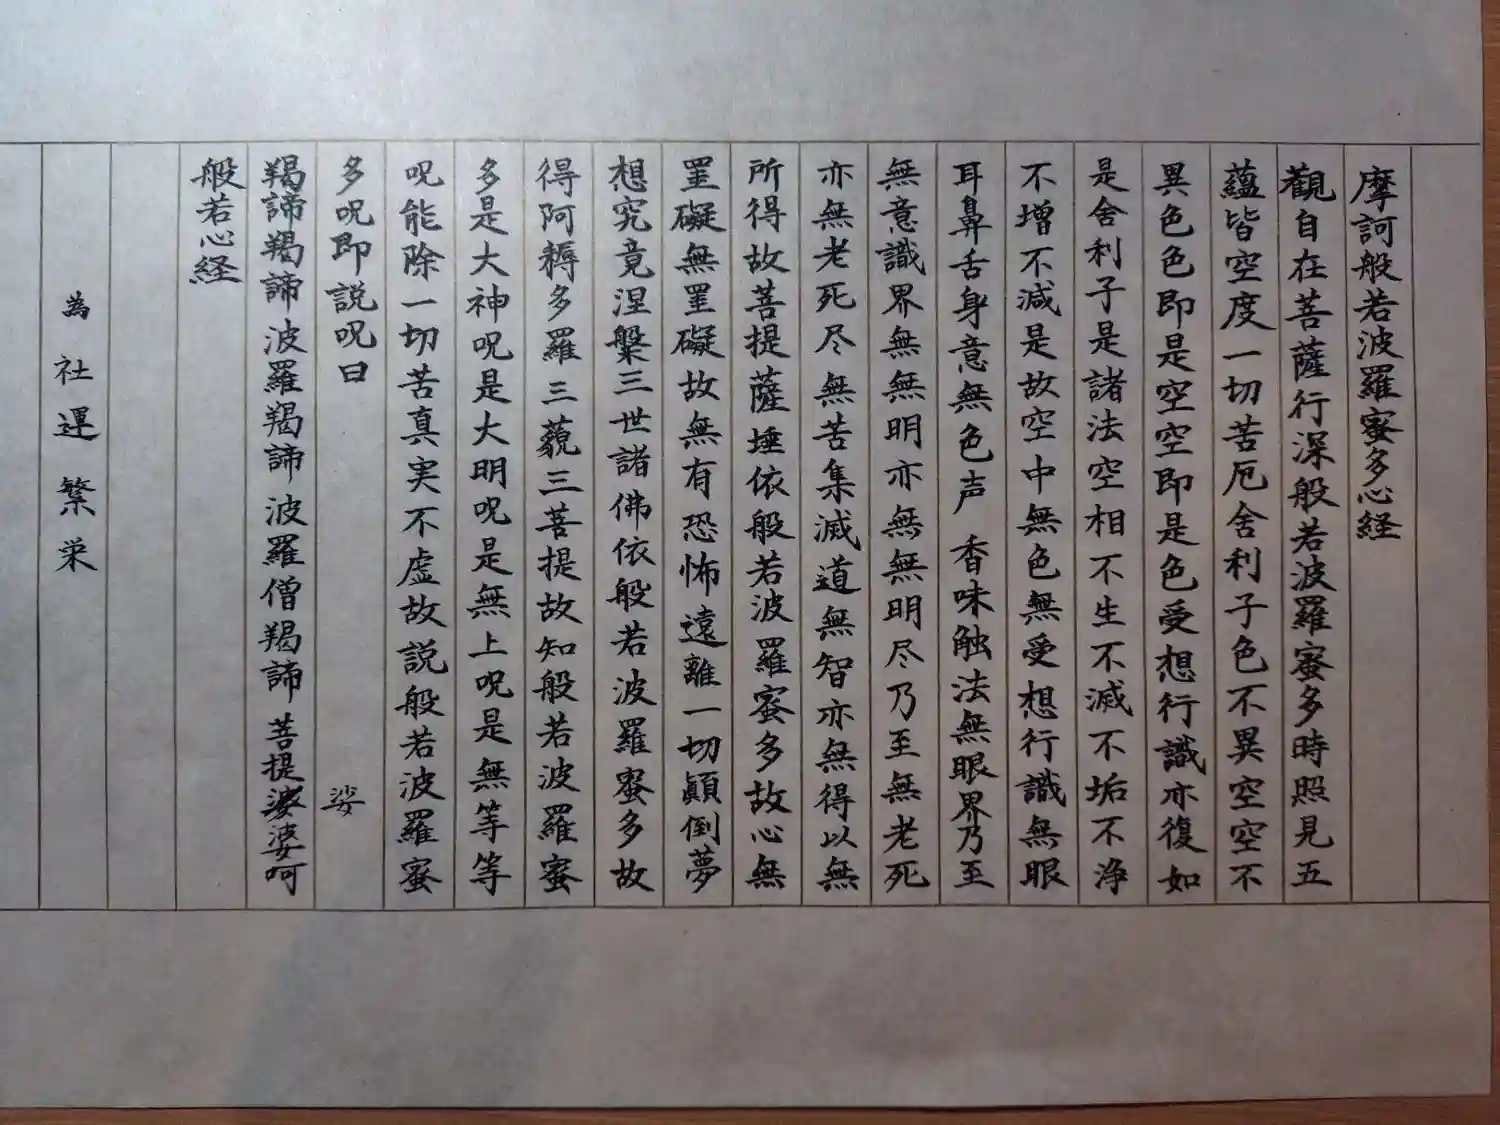 摩訶般若波羅蜜多心経
觀自在菩薩行深般若波羅蜜多時照見五
蘊皆空度一切苦厄舍利子色不異空空不
異色色即是空空即是色受想行識亦復如
是舍利子是諸法空相不生不滅不垢不浄
不増不減是故空中無色無受想行識無眼
耳鼻舌身意無色声香味触法無眼界乃至
無意識界無無明亦無無明尽乃至無老死
亦無老死尽無苦集滅道無智亦無得以無
所得故菩提薩埵依般若波羅蜜多故心無
罣礙無罣礙故無有恐怖遠離一切顚倒夢
想究竟涅槃三世諸佛依般若波羅蜜多故
得阿耨多羅三藐三菩提故知般若波羅蜜
多是大神呪是大明呪是無上呪是無等等
呪能除一切苦真実不虚故説般若波羅蜜
多呪即説呪曰
娑
羯諦羯諦波羅羯諦波羅僧羯諦菩提婆婆呵
般若心経
為社運繁栄